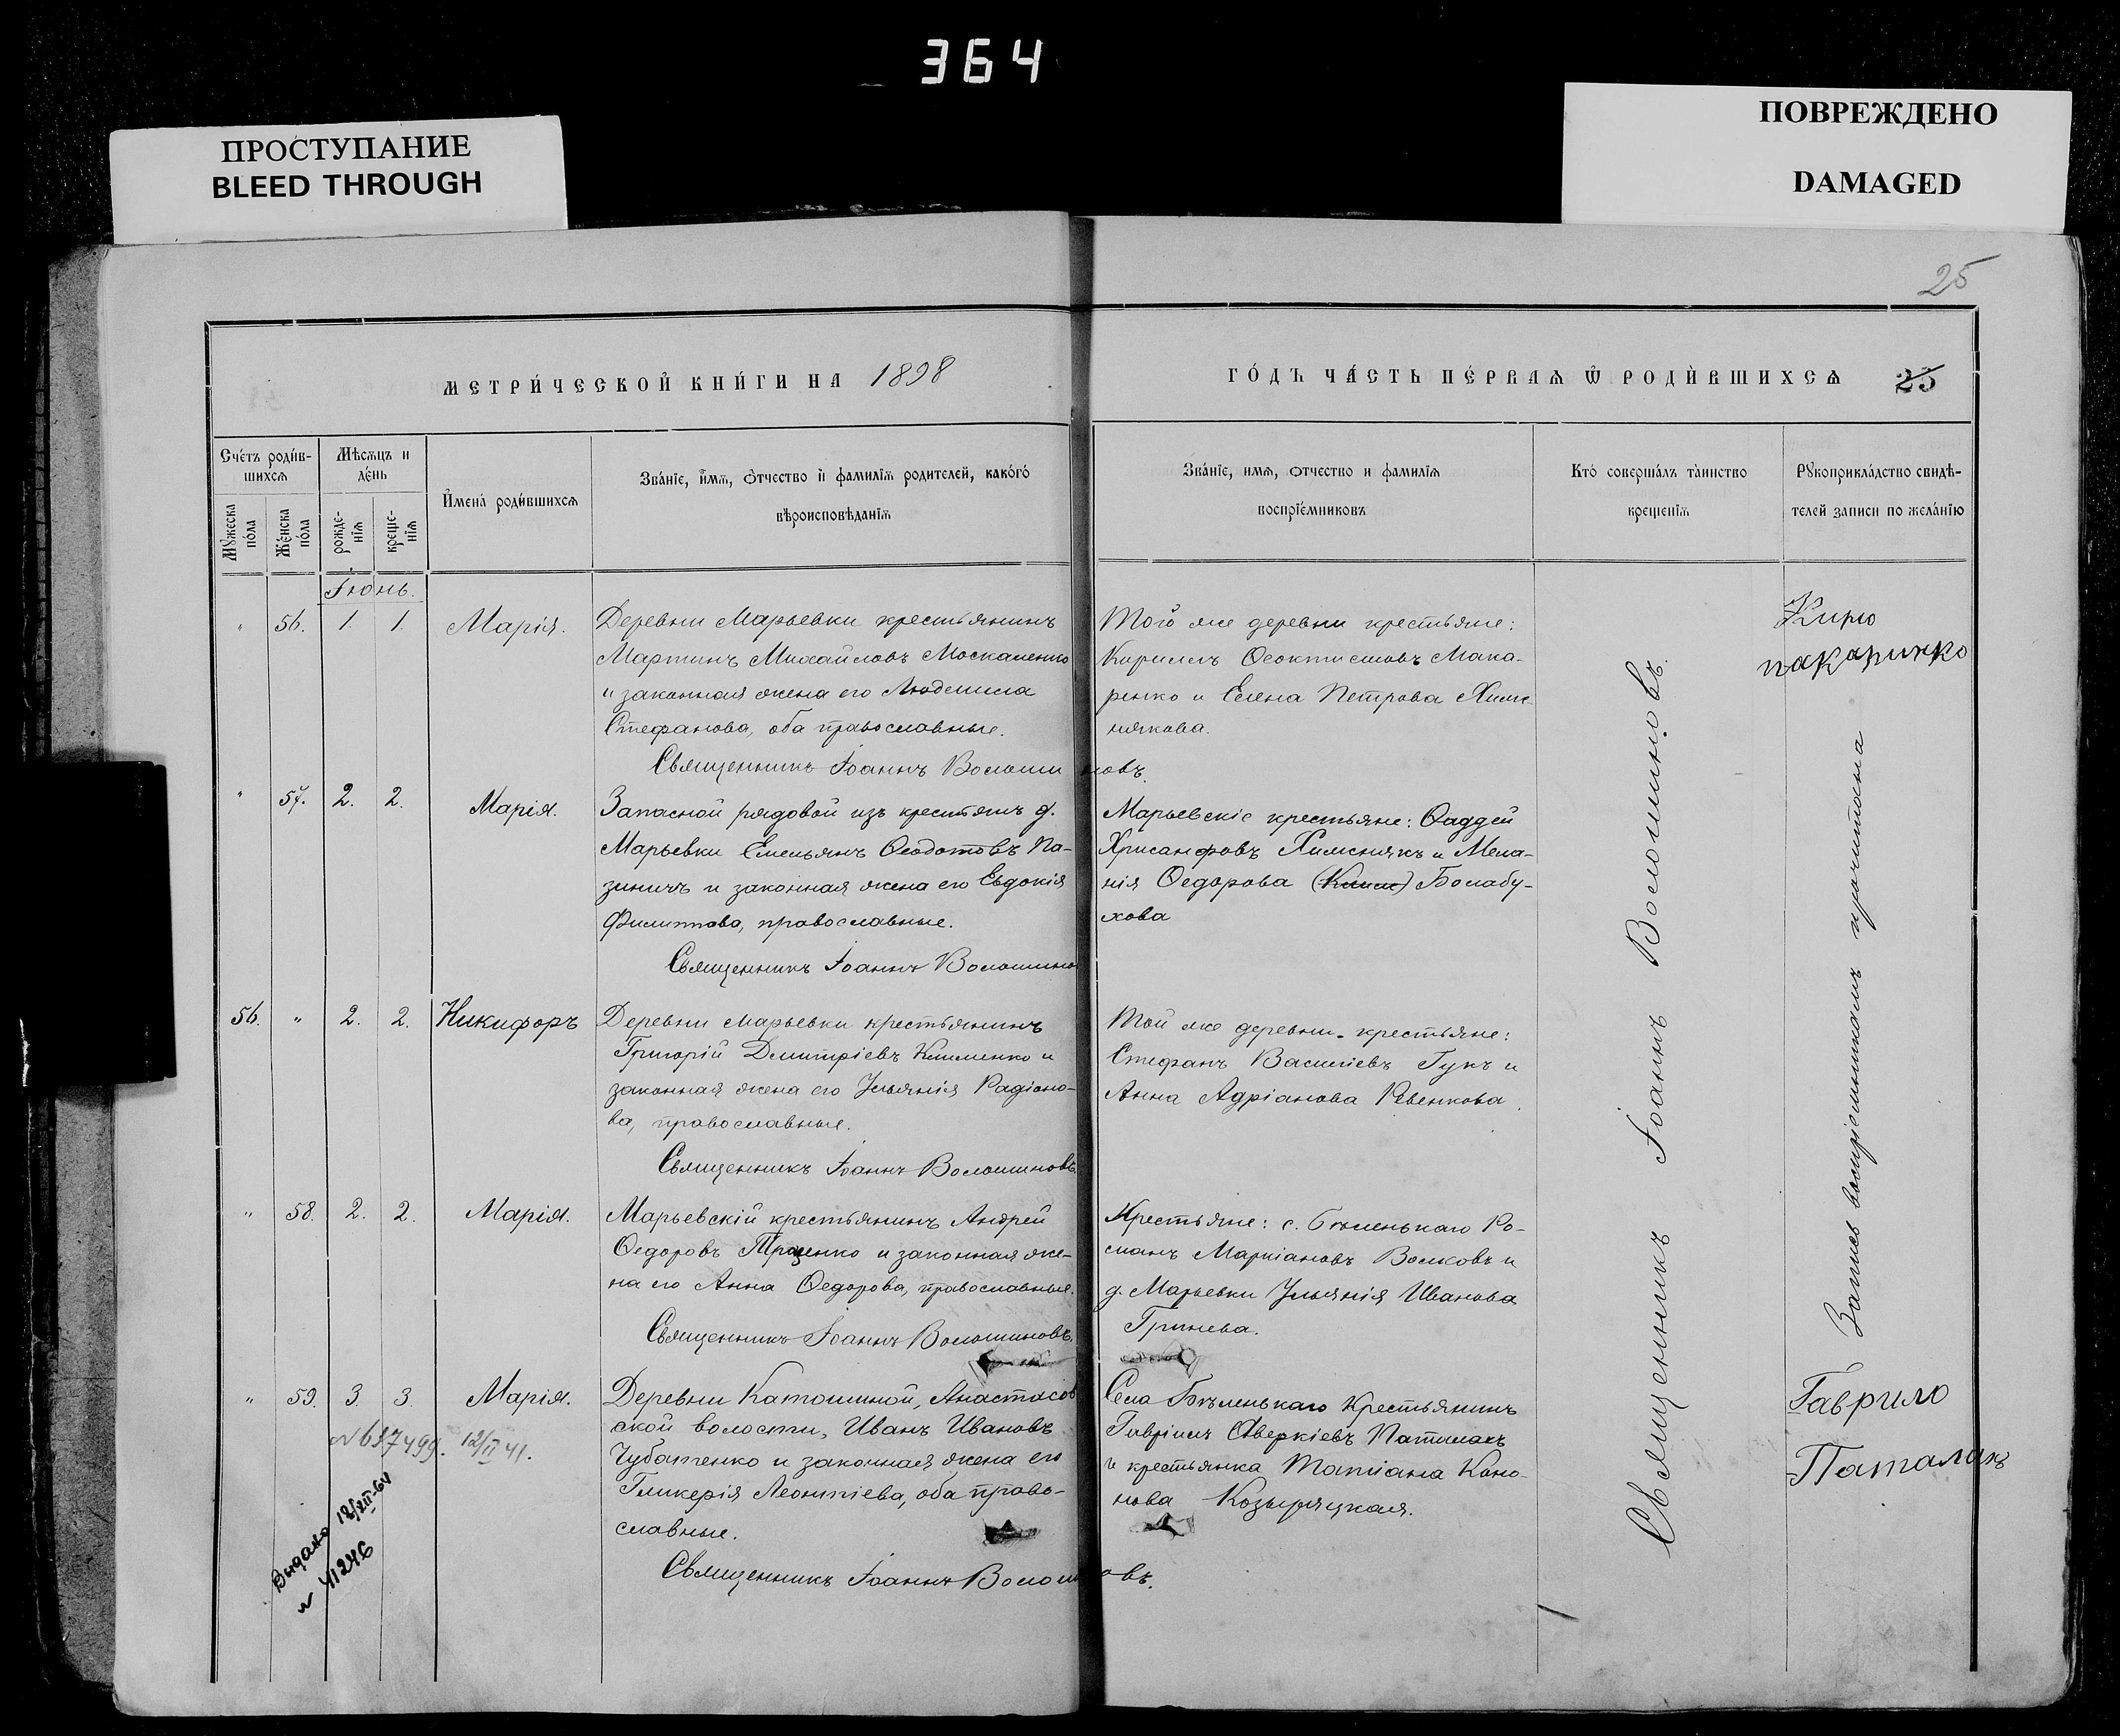 364
ПРОСТУПАНИЕ
BLEED THROUGH
ПОВРЕЖДЕНО
DAMAGED
25
МЕТРИ́ЧЕСКОЙ КНИ́ГИ НА 1898
ГО́ДЪ ЧА́СТЬ ПЕ́РВАѦ Ѡ РОДИ́ВШИХСѦ 25
Сче́тъ роди́в-
шихсѧ
Мꙋ́жеска
по́ла
Же́нска
по́ла
Мѣ́сѧцъ и
де́нь
рожде-
нїѧ
креще-
нїѧ
Имена̀ роди́вшихсѧ
Зва́нїе, и́мѧ, о́тчество и фами́лїѧ родителей, како́гѡ
вѣроисповѣ́данїѧ
Зва́нїе, имѧ, отчество и фамилїѧ
воспрїе́мниковъ
Кто́ соверша́лъ та́инство
крещенїѧ
Рꙋкоприкла́дство свидѣ-
телей записи по жела́нїю
Іюнь.
" 56. 1. 1. Марія.
Деревни Марьевки крестьянинъ
Мартинъ Михайловъ Москаленко
и законная жена его Людмила
Стефанова, оба православные.
Священникъ Іоаннъ Волошиновъ.
Той же деревни крестьяне:
Кириллъ Ѳеоктистовъ Мака-
ренко и Елена Петрова Химе-
някова.
Кирю
макаринко
" 57. 2. 2. Марія.
Запасной рядовой изъ крестьянъ д.
Марьевки Емельянъ Ѳеодотовъ Па-
зиничъ и законная жена его Евдокія
Филиппова, православные.
Священникъ Іоаннъ Волошино
Марьевскіе крестьяне: Ѳаддей
Хрисанфовъ Хименякъ и Мела-
нія Ѳедорова Болабу-
хова
56. " 2. 2. Никифоръ
Деревни Марьевки крестьянинъ
Григорій Димитріевъ Клименко и
законная жена его Ульянія Радіоно-
ва, православные.
Священникъ Іоаннъ Волошиновъ
Той же деревни крестьяне:
Стефанъ Василіевъ Гукъ и
Анна Адріанова Ревенкова.
" 58. 2. 2. Марія.
Марьевскій крестьянинъ Андрей
Ѳедоровъ Троценко и законная же-
на его Анна Ѳедорова, православные.
Священникъ Іоаннъ Волошиновъ.
Крестьяне: с. Бѣленькаго Ро-
манъ Маркіановъ Волковъ и
д. Марьевки Ульянія Иванова
Гринева.
" 59. 3. 3. Марія.
Деревни Катошиной, Анастасов
ской волости, Иванъ Ивановъ
Чубатенко и законная жена его
Гликерія Леонтіева, оба право-
славные.
Священникъ Іоаннъ Волошиновъ.
Села Бѣленькаго крестьянинъ
Гавріилъ Аверкіевъ Паталахъ
и крестьянка Татіана Коно-
нова Козыряцкая.
Гаврило
Паталахъ
№637499. 12/II 41.
Выдано 18/XII-60
№ 41246
Священникъ Іоаннъ Волошиновъ.
Запись воспріемникамъ прочитана